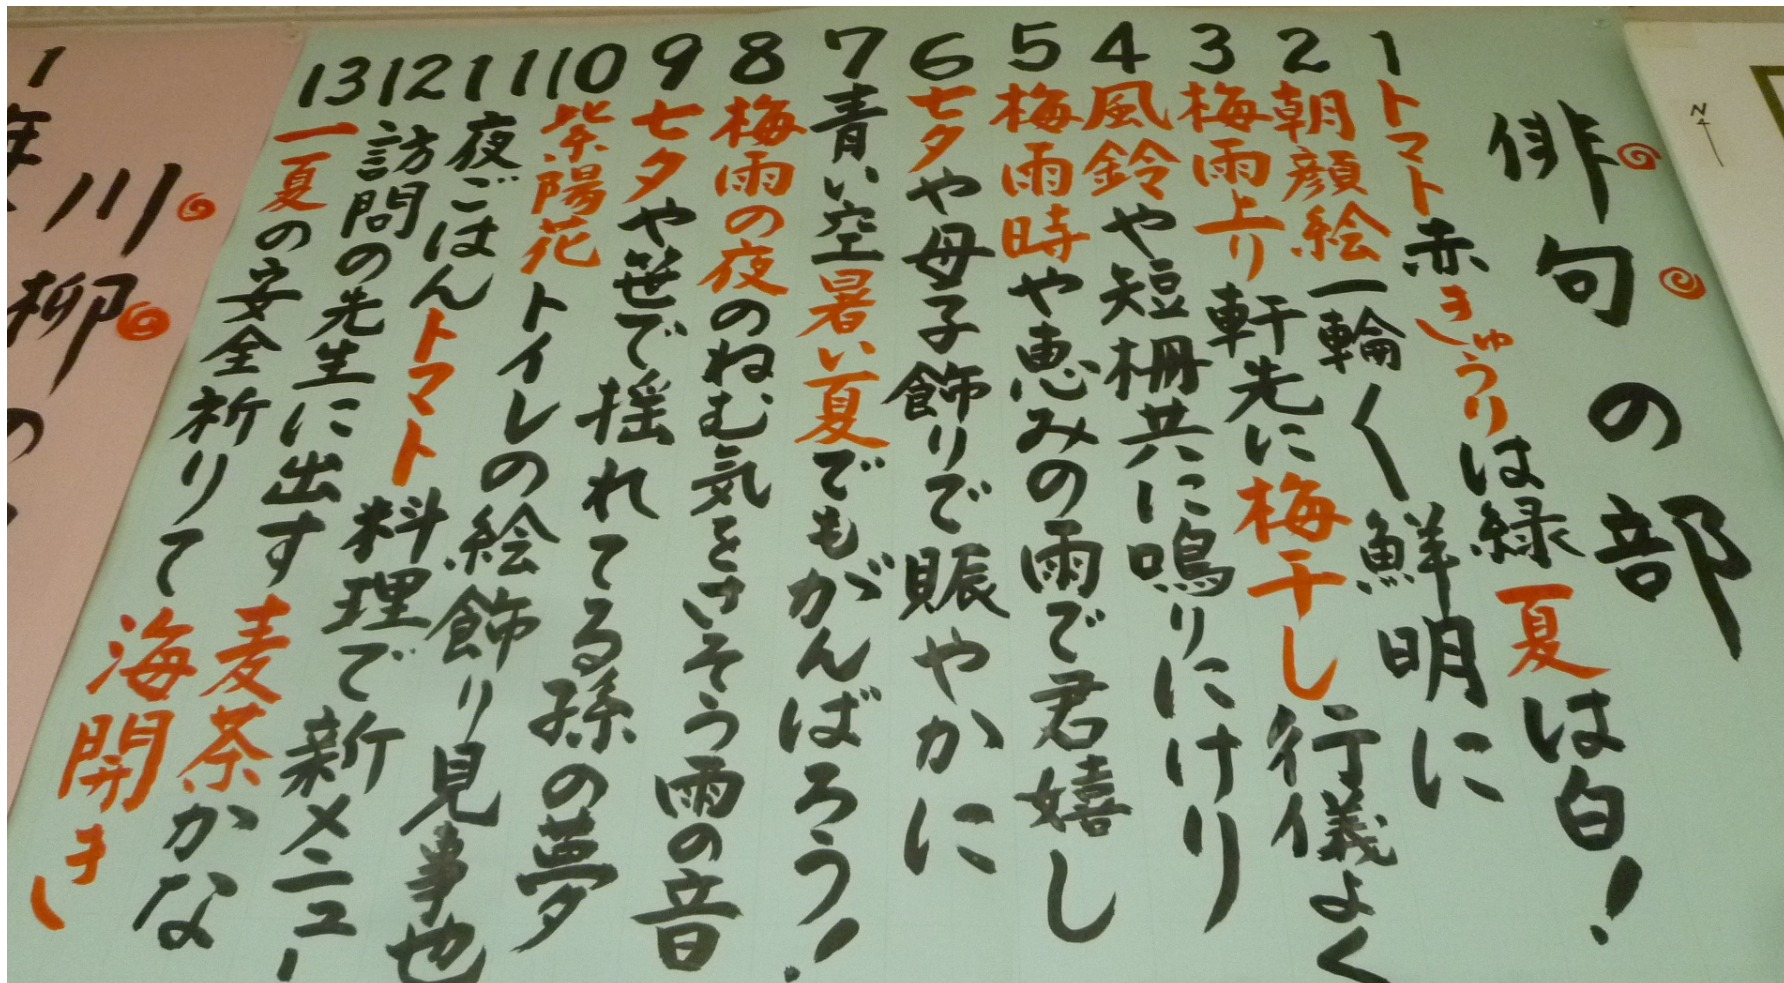 俳句の部
1 トマト赤きゅうりは緑夏は白!
2 朝顔絵一輪〱鮮明に
3 梅雨上り軒先に梅干し行儀よく
4 風鈴や短柵共に鳴りにけり
5 梅雨時や恵みの雨で君嬉し
6 七夕や母子飾りで賑やかに
7 青い空暑い夏でもがんばろう!
8 梅雨の夜のねむ気をさそう雨の音
9 七夕や笹で揺れてる孫の夢
10 紫陽花トイレの絵飾り見事也
11 夜ごはんトマト料理で新メニュー
12 訪問の先生に出す麦茶かな
13 一夏の安全祈りて海開き
川柳の
1
N